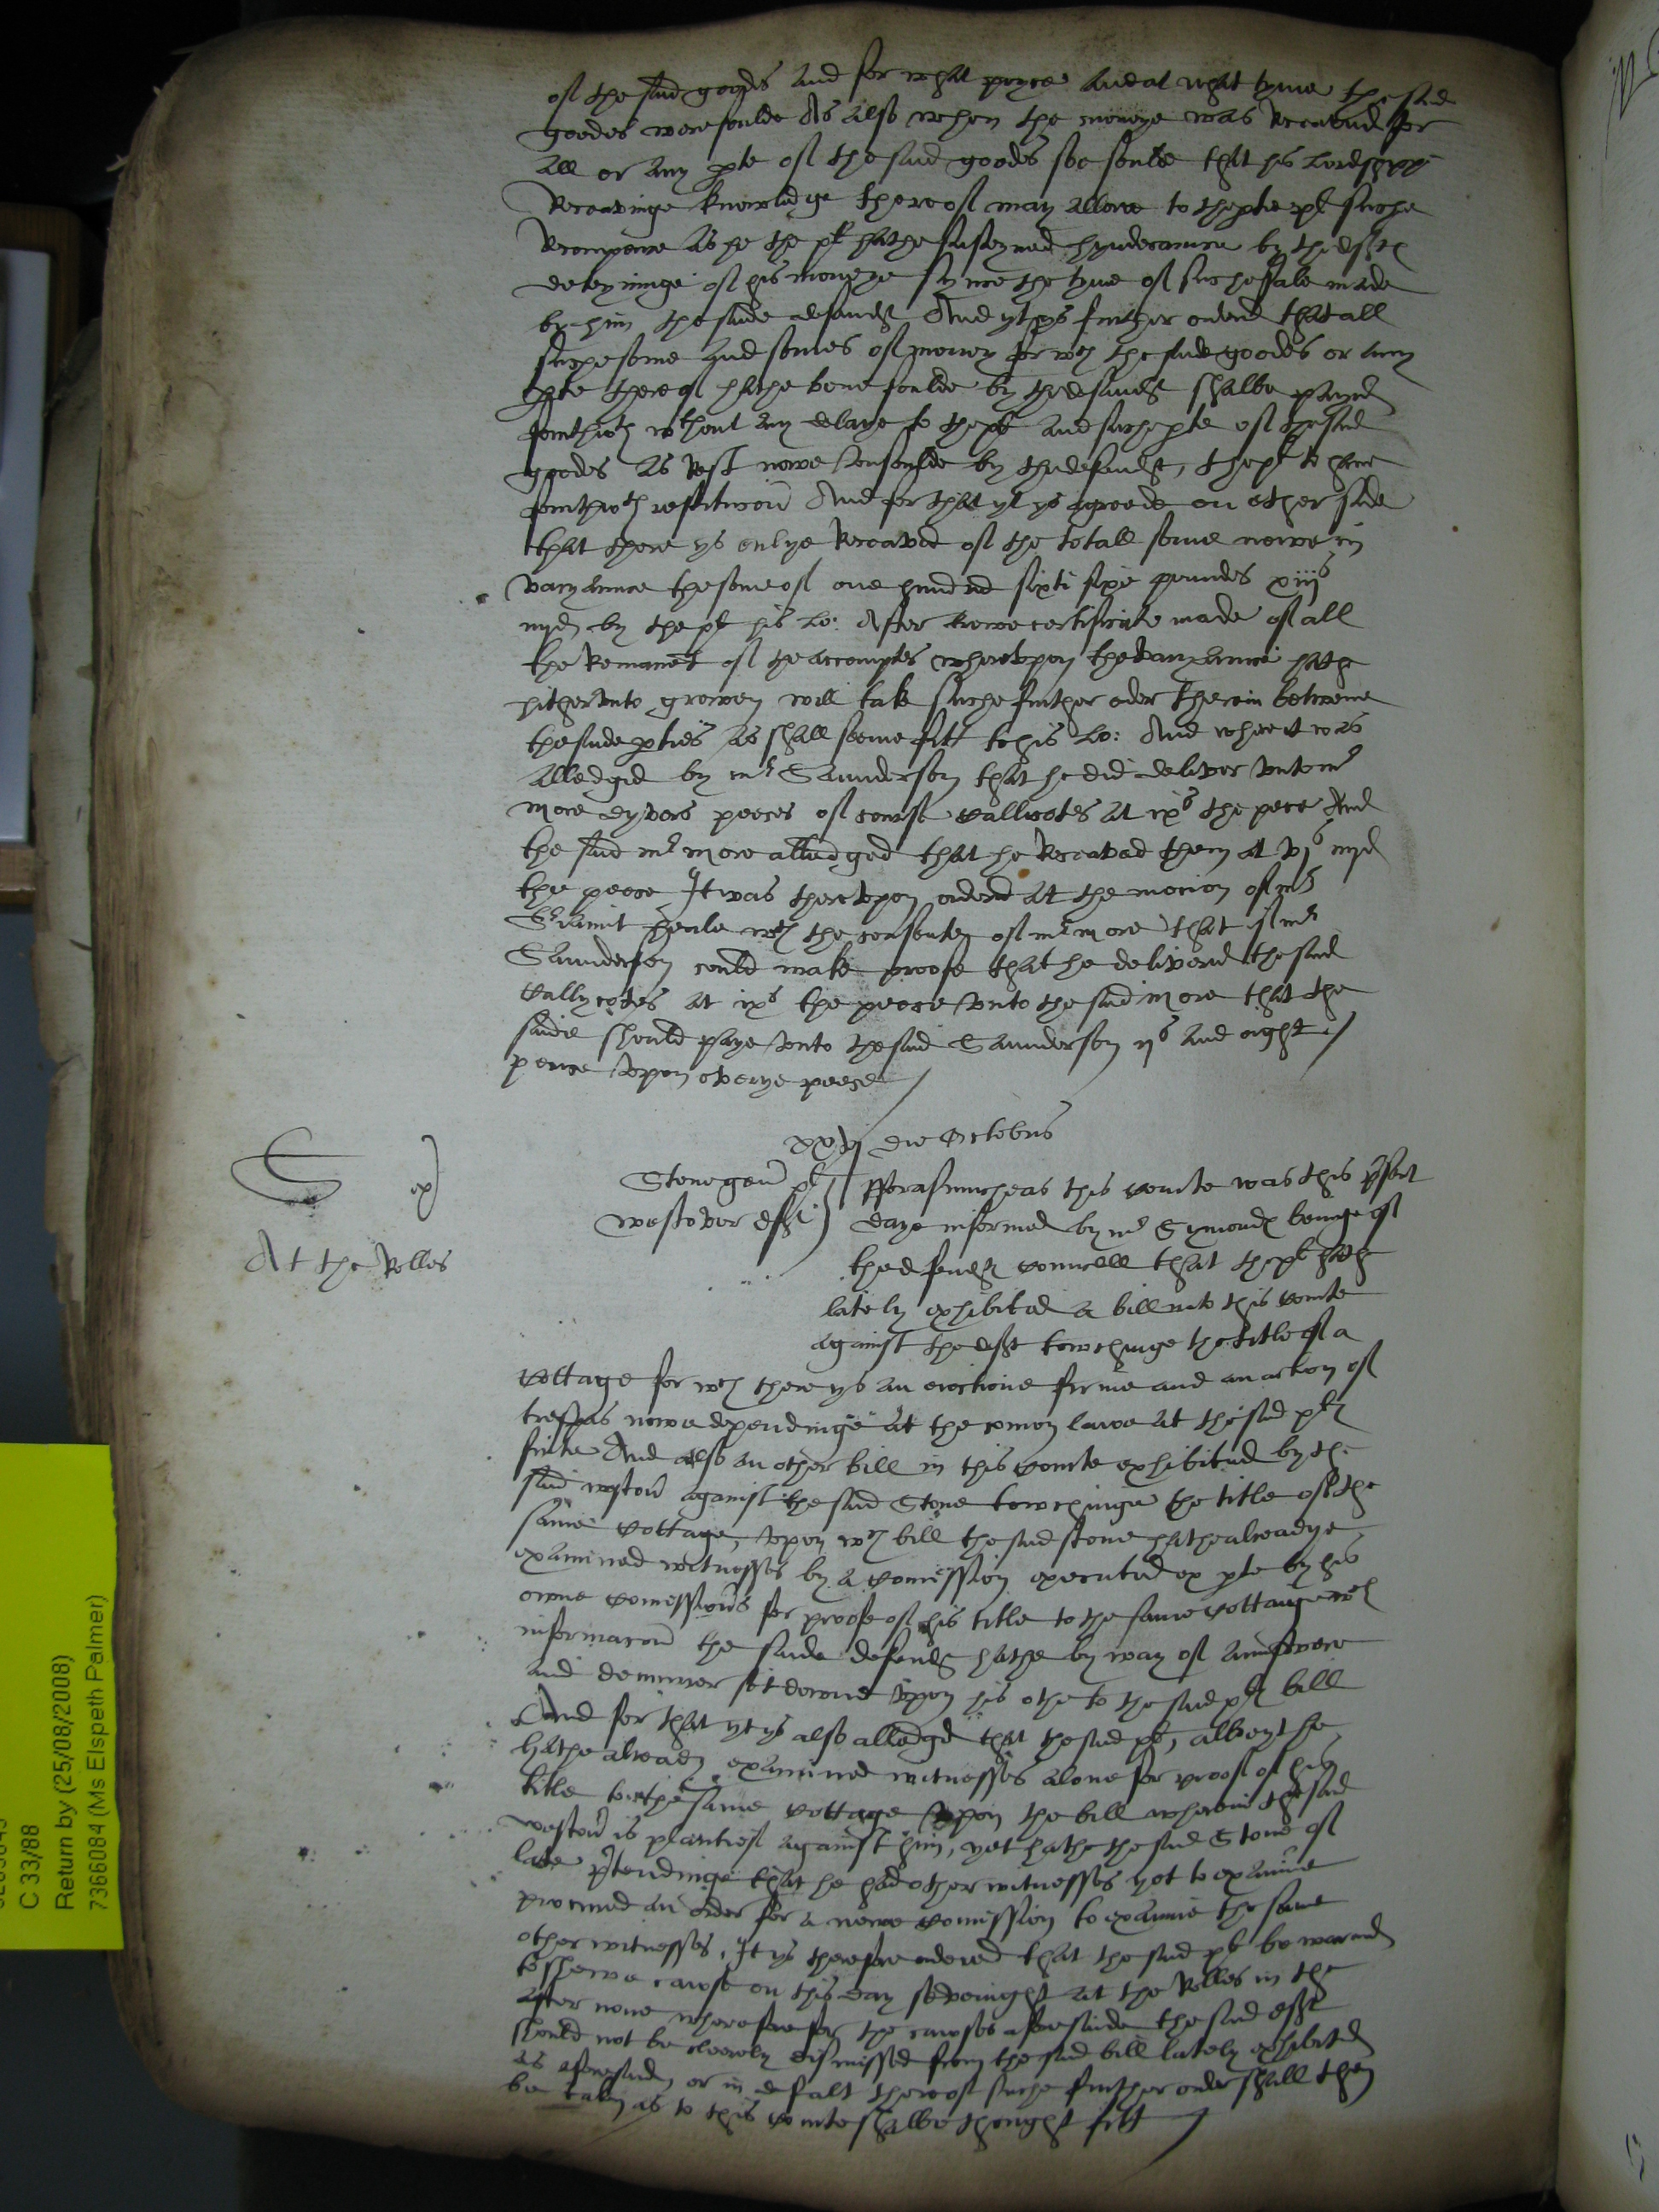 of the said goodes and for what pryce and at what tyme the said
goodes were soulde As also when the moneye was Receaved for
all or any pte of the said goodes soe soulde that his Lordshipp
Receavinge knowledge thereof may allowe to the pl suche
Recompence as he the pl hathe susteyned hynderance by the deft
deteyninge of his moneye synce the tyme of suche sale made
by him the saide defendt And yt ys further ordred that all
suche some and somes of money for wch the saide goodes or any
pte thereof hathe bene soulde by the defendt shalbe payed
forthwth wthout any delaye to the pl and suche pte of the said
goodes as Rest nowe unsoulde by the defendt, the pl to have
forthwth restitucon And for that yt ys agreede on ether side
that there ys onlye Receaved of the totall some nowe in
varyaunce the some of one hundred sixti sixe poundes xiijs
iiijd by the pl his Lo: After knowe certificate made of all
the Remanet of the accomptes whereupon the varyaunce hathe
hitherunto growen will take suche further order therein betweene
the saide pties as shall seeme fitt to his Lo: And where it was
alledged by mr Saunderson that he did deliver unto mr
More dyvers peeces of course callicotes at ixs the pece And
the said mr More alledged that he Receaved them at vjs iiijd
the peece It was thereupon ordred at the mocion of mr
Sriant wth the consente of mr More that if mr
Saunderson could make proofe that he delivered the said
Callycotes at ixs the peece unto the said More that the
saide should paye unto the said Saunderson ijs and eight
pence upon everye peece /
xxvj die Octobris
S ex
At the Rolles
Stone gen pl
Westover deft
Forasmucheas this courte was this psent
daye informed by mr Symondes beinge of
the defendtes councell that the pl hathe
lately exhibited a bill into this courte
against the deft towchinge the title of a
Cottage for wch there ys an eiectione firme and an action of
trespas nowe dependinge at the comon lawe at the said pls
suite And also an other bill in this courte exhibited by the
said against the said Stone towchinge the title of the
same cottage, upon wch bill the said Stone hathe alreadye
examined witnesses by a comission executed ex pte by his
owne comissions for proofe of his title to the same cottage wch
informacon the saide defendt hathe by way of aunswere
and demurrer set downe upon his othe to the said pls bill
And for that yt ys also alledged that the said pl, albeyt he
hathe alreadye examined witnesses alone for proof of his
title to the same cottage upon the bill wherein the said
is plaintief against him, yet hathe the said Stone of
late ptendinge that he had other witnesses yet to examine
procured an order for a newe comission to examine the same
other witnesses, It ys therefore ordered that the said pl be warned
to shewe cause on this day sevenight at the Rolles in the
after none wherefore for the causes aforesaide the said deft
should not be cleerely dismissed from the said bill lately exhibited
as aforesaid, or in default thereof suche further order shall then
be taken as to this courte shalbe thought fitt /
C 33/88
Return by (25/08/2008)
7366084 (Ms Elspeth Palmer)